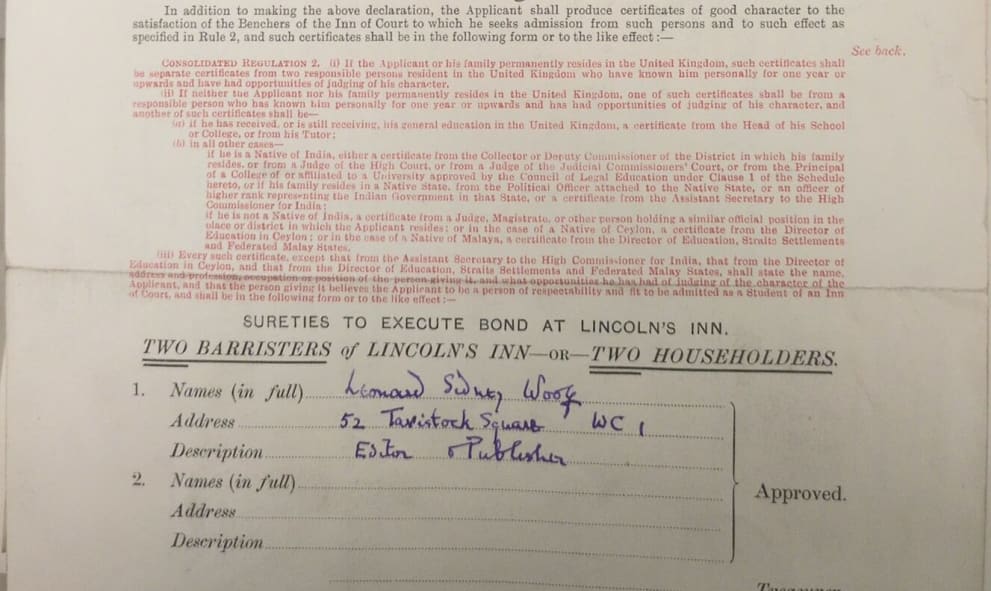 In addition to making the above declaration, the Applicant shall produce certificates of good character to the
satisfaction of the Benchers of the Inn of Court to which he seeks admission from such persons and to such effect as
specified in Rule 2, and such certificates shall be in the following form or to the like effect :—
See back.
CONSOLIDATED REGULATION 2. (i) If the Applicant or his family permanently resides in the United Kingdom, such certificates shall
be separate certificates from two responsible persons resident in the United Kingdom who have known him personally for one year or
upwards and have had opportunities of judging of his character.
(ii) If neither the Applicant nor his family permanently resides in the United Kingdom, one of such certificates shall be from a
responsible person who has known him personally for one year or upwards and has had opportunities of judging of his character, and
another of such certificates shall be—
(a) if he has received, or is still receiving, his general education in the United Kingdom, a certificate from the Head of his School
or College, or from his Tutor;
(b) in all other cases—
if he is a Native of India, either a certificate from the Collector or Deputy Commissioner of the District in which his family
resides, or from a Judge of the High Court, or from a Judge of the Judicial Commissioners' Court, or from the Principal
of a College of or affiliated to a University approved by the Council of Legal Education under Clause 1 of the Schedule
hereto, or if his family resides in a Native State, from the Political Officer attached to the Native State, or an officer of
higher rank representing the Indian Government in that State, or a certificate from the Assistant Secretary to the High
Commissioner for India;
if he is not a Native of India, a certificate from a Judge, Magistrate, or other person holding a similar official position in the
place or district in which the Applicant resides; or in the case of a Native of Ceylon, a certificate from the Director of
Education in Ceylon; or in the case of a Native of Malaya, a certificate from the Director of Education, Straits Settlements
and Federated Malay States.
(iii) Every such certificate, except that from the Assistant Secretary to the High Commissioner for India, that from the Director of
Education in Ceylon, and that from the Director of Education, Straits Settlements and Federated Malay States, shall state the name,
address and profession, occupation or position of the person giving it, and what opportunities he has had of judging of the character of the
Applicant, and that the person giving it believes the Applicant to be a person of respectability and fit to be admitted as a Student of an Inn
of Court, and shall be in the following form or to the like effect :—
SURETIES TO EXECUTE BOND AT LINCOLN'S INN.
TWO BARRISTERS of LINCOLN'S INN—OR—TWO HOUSEHOLDERS.
1. Names (in full) Leonard Sidney Woolf
Address 52 Tavistock Square WC1
Description Editor & Publisher
2. Names (in full)
Address
Description
Approved.